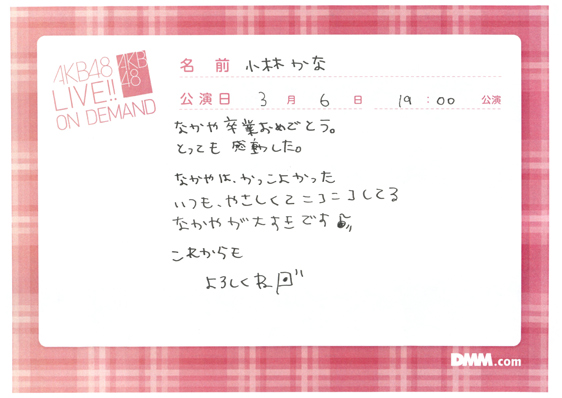 AKB48
LIVE!!
ON DEMAND
AKB
48
名 前 小林 かな
公演日 3 月 6 日 19 : 00 公演
なかや 卒業おめでとう。
とっても 感動した。
なかやは、かっこよかった
いつも、やさしくて ニコニコしてる
なかやが大すきです
これからも
よろしくね
DMM.com